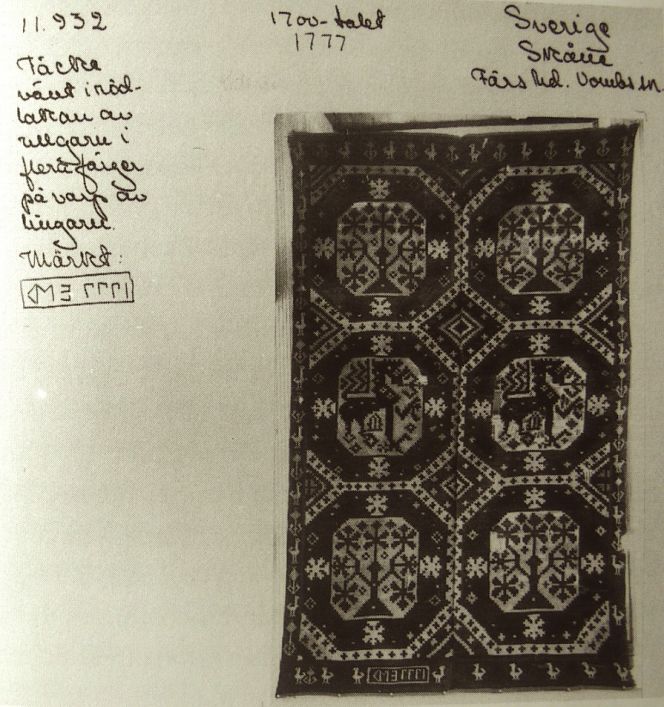 11.932
Täcke
vävt i röd-
lakan av
ullgarn i
flera färger
på varp av
lingarn.
Märkt:
1777
1700-talet
1777
Sverige
Skåne
Färs hd. Vombs sn.